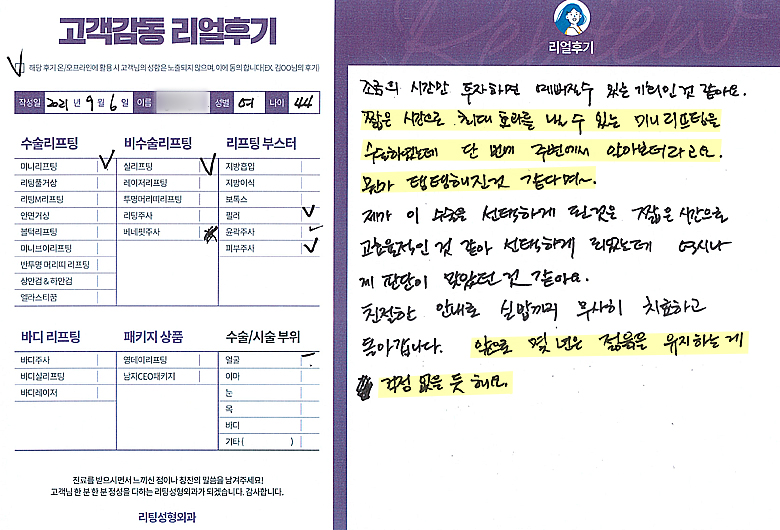 고객감동 리얼후기
해당 후기 온/오프라인에 활용 시 고객님의 성함은 노출되지 않으며, 이에 동의 합니다(EX. 김OO님의 후기)
작성일 2021년 9월 6일 이름 성별 여 나이 44
수술리프팅
미니리프팅
리팅풀거상
리팅M리프팅
안면거상
볼턱리프팅
미니브이리프팅
반투명 머리띠 리프팅
상안검 & 하안검
엘라스티꿈
비수술리프팅
실리프팅
레이저리프팅
투명머리띠리프팅
리팅주사
베네핏주사
리프팅 부스터
지방흡입
지방이식
보톡스
필러
윤곽주사
피부주사
바디 리프팅
바디주사
바디실리프팅
바디레이저
패키지 상품
영데이리프팅
남자CEO패키지
수술/시술 부위
얼굴
이마
눈
목
바디
기타 ( )
진료를 받으시면서 느끼신 점이나 칭찬의 말씀을 남겨주세요!
고객님 한 분 한 분 정성을 다하는 리팅성형외과가 되겠습니다. 감사합니다.
리팅성형외과
리얼후기
조금의 시간만 투자하면 예뻐질수 있는 기회인것 같아요.
짧은 시간으로 최대 효과를 낼 수 있는 미니리프팅을
수술하였는데 단 번에 주변에서 알아보더라고요.
뭔가 탱탱해진것 같다며~.
제가 이 수술을 선택하게 된것은 짧은 시간으로
고효율적인 것 같아 선택하게 되었는데 역시나
제 판단이 맞았던 것 같아요.
친절한 안내로 실밥까지 무사히 치료하고
돌아갑니다. 앞으로 몇 년은 젊음을 유지하는 게
걱정 없을 듯 해요.